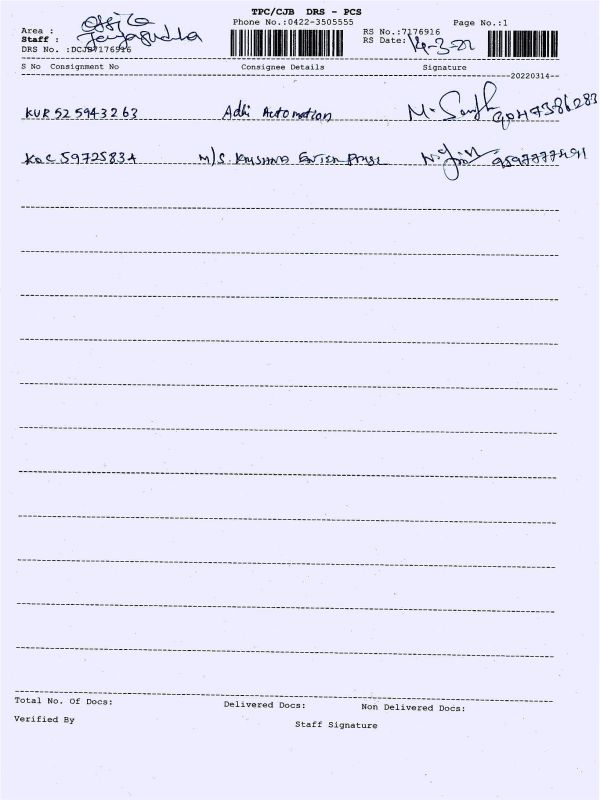 TPC/CJB DRS - PCS
Area : Office
Phone No.:0422-3505555
Page No.:1
Staff :
RS No.:7176916
DRS No. :DCJB7176916
RS Date: 14-3-22
S No Consignment No Consignee Details Signature
20220314
KUR 525943263 Adhi Automation M.
KOC 5972583A M/S. KRISHNA ENTER PRISE
Total No. Of Docs: Delivered Docs: Non Delivered Docs:
Verified By Staff Signature